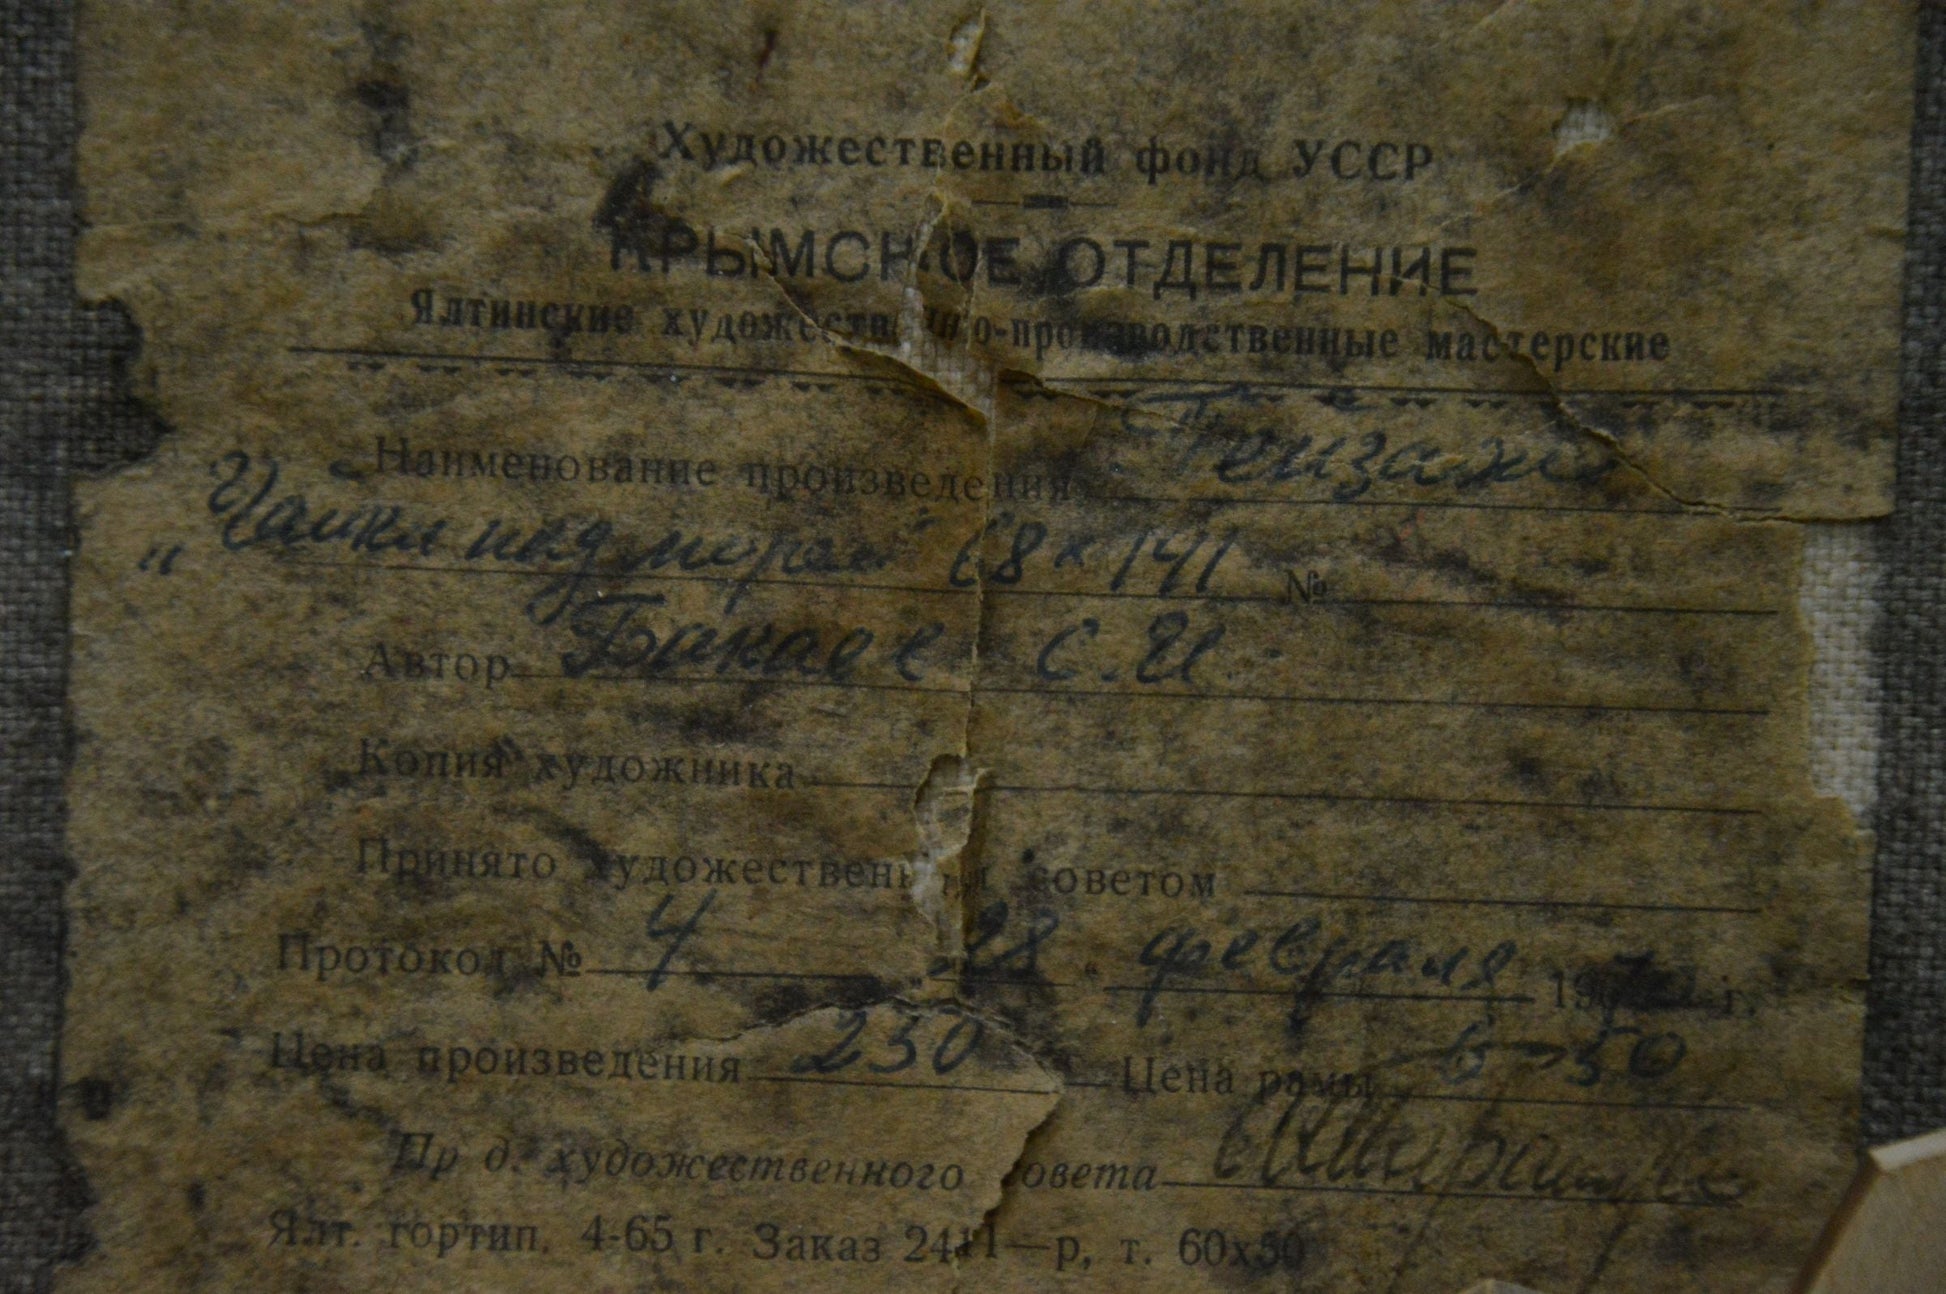 Художественный фонд УССР
КРЫМСКОЕ ОТДЕЛЕНИЕ
Ялтинские художественно-производственные мастерские
Наименование произведения Пейзаж
„Чайки над морем" 68 х 141 №
Автор Бакаев С. И.
Копия художника
Принято художественным советом
Протокол № 4 „28" февраля 19 г.
Цена произведения 250 Цена рамы 6-50
Пр д. художественного совета
Ялт. гортип. 4-65 г. Заказ 2411—р, т. 60х50